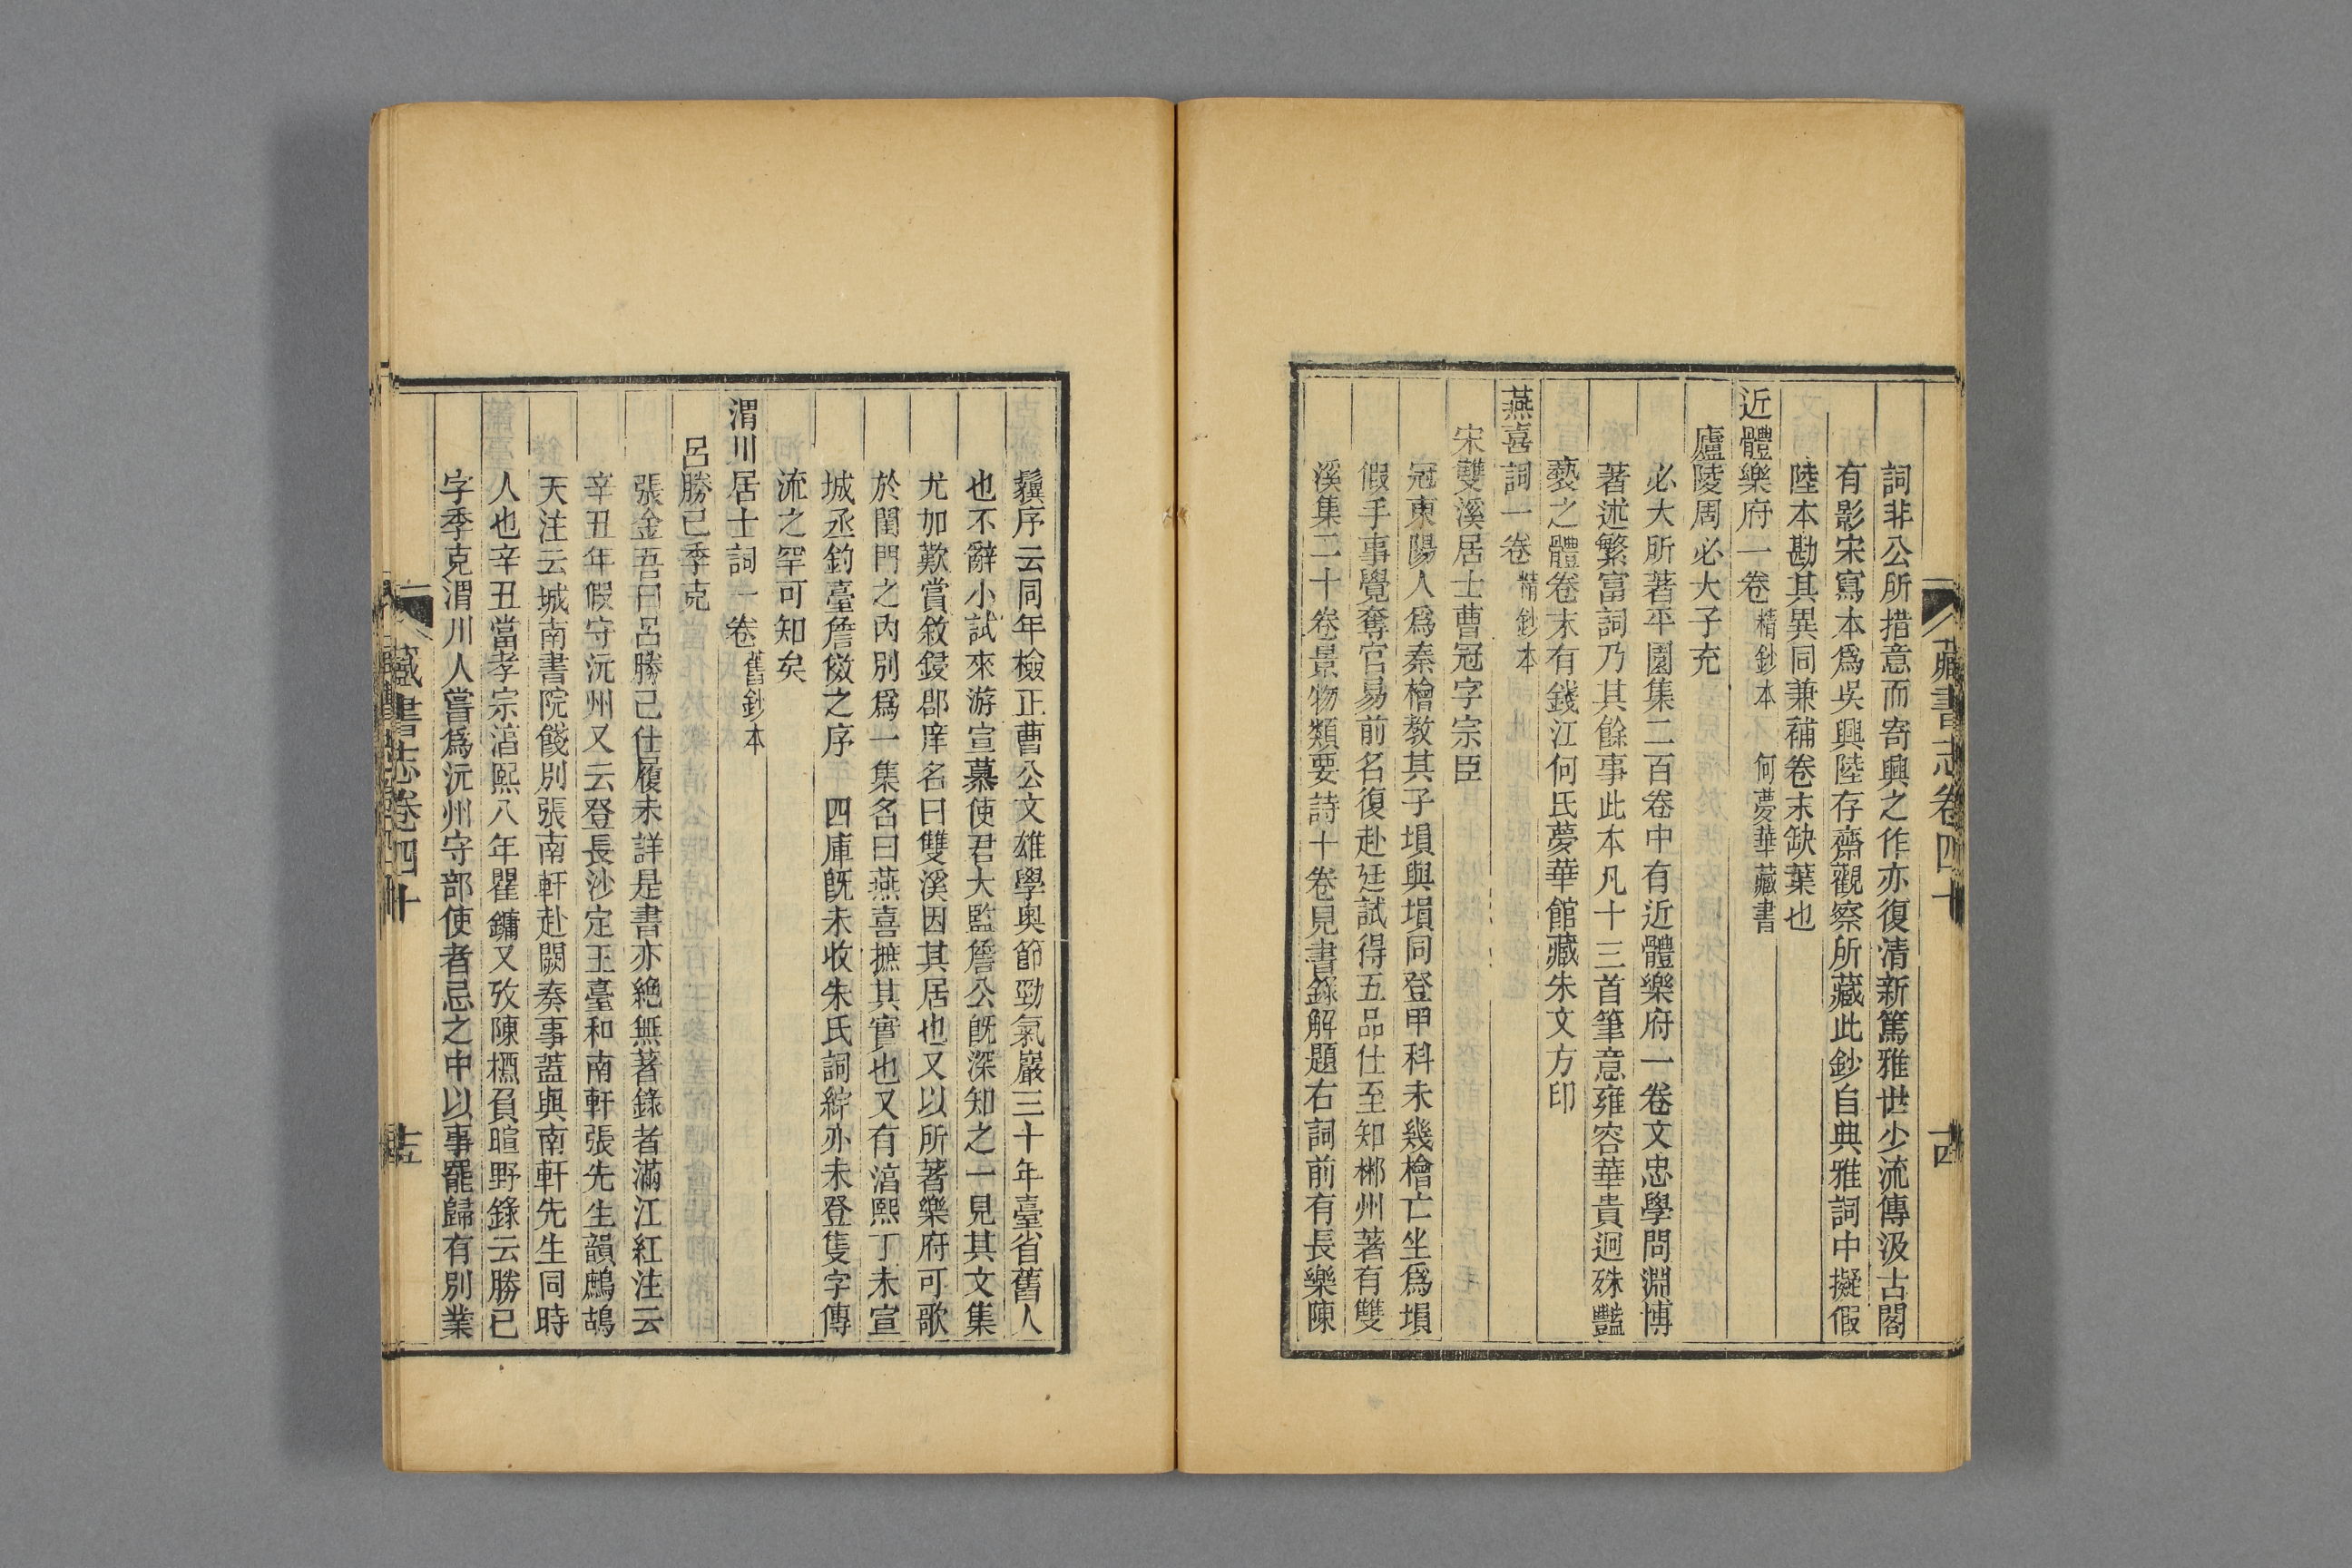 藏書志卷四十
詞非公所措意而寄興之作亦復清新篤雅世少流傳汲古閣
有影宋寫本爲吳興陸存齋觀察所藏此鈔自典雅詞中擬假
陸本勘其異同兼補卷末缺葉也
近體樂府一卷精鈔本　何夢華藏書
廬陵周必大子充
必大所著平園集二百卷中有近體樂府一卷文忠學問淵博
著述繁富詞乃其餘事此本凡十三首筆意雍容華貴迥殊豔
褻之體卷末有錢江何氏夢華館藏朱文方印
燕喜詞一卷精鈔本
宋雙溪居士曹冠字宗臣
冠東陽人爲秦檜教其子塤與塤同登甲科未幾檜亡坐爲塤
假手事覺奪官易前名復赴廷試得五品仕至知郴州著有雙
溪集二十卷景物類要詩十卷見書錄解題右詞前有長樂陳
鬚序云同年檢正曹公文雄學奧節勁氣嚴三十年臺省舊人
也不辭小試來游宣慕使君大監詹公旣深知之一見其文集
尤加歎賞敘鋟郡庠名曰雙溪因其居也又以所著樂府可歌
於閨門之內別爲一集名曰燕喜摭其實也又有淳熙丁未宣
城丞釣臺詹傚之序　四庫旣未收朱氏詞綜亦未登隻字傳
流之罕可知矣
渭川居士詞一卷舊鈔本
呂勝已季克
張金吾曰呂勝己仕履未詳是書亦絶無著錄者滿江紅注云
辛丑年假守沅州又云登長沙定王臺和南軒張先生韻鷓鴣
天注云城南書院餞別張南軒赴闕奏事蓋與南軒先生同時
人也辛丑當孝宗淳熙八年瞿鏞又攷陳櫄負暄野錄云勝已
字季克渭川人嘗爲沅州守部使者忌之中以事罷歸有別業
藏書志卷四十